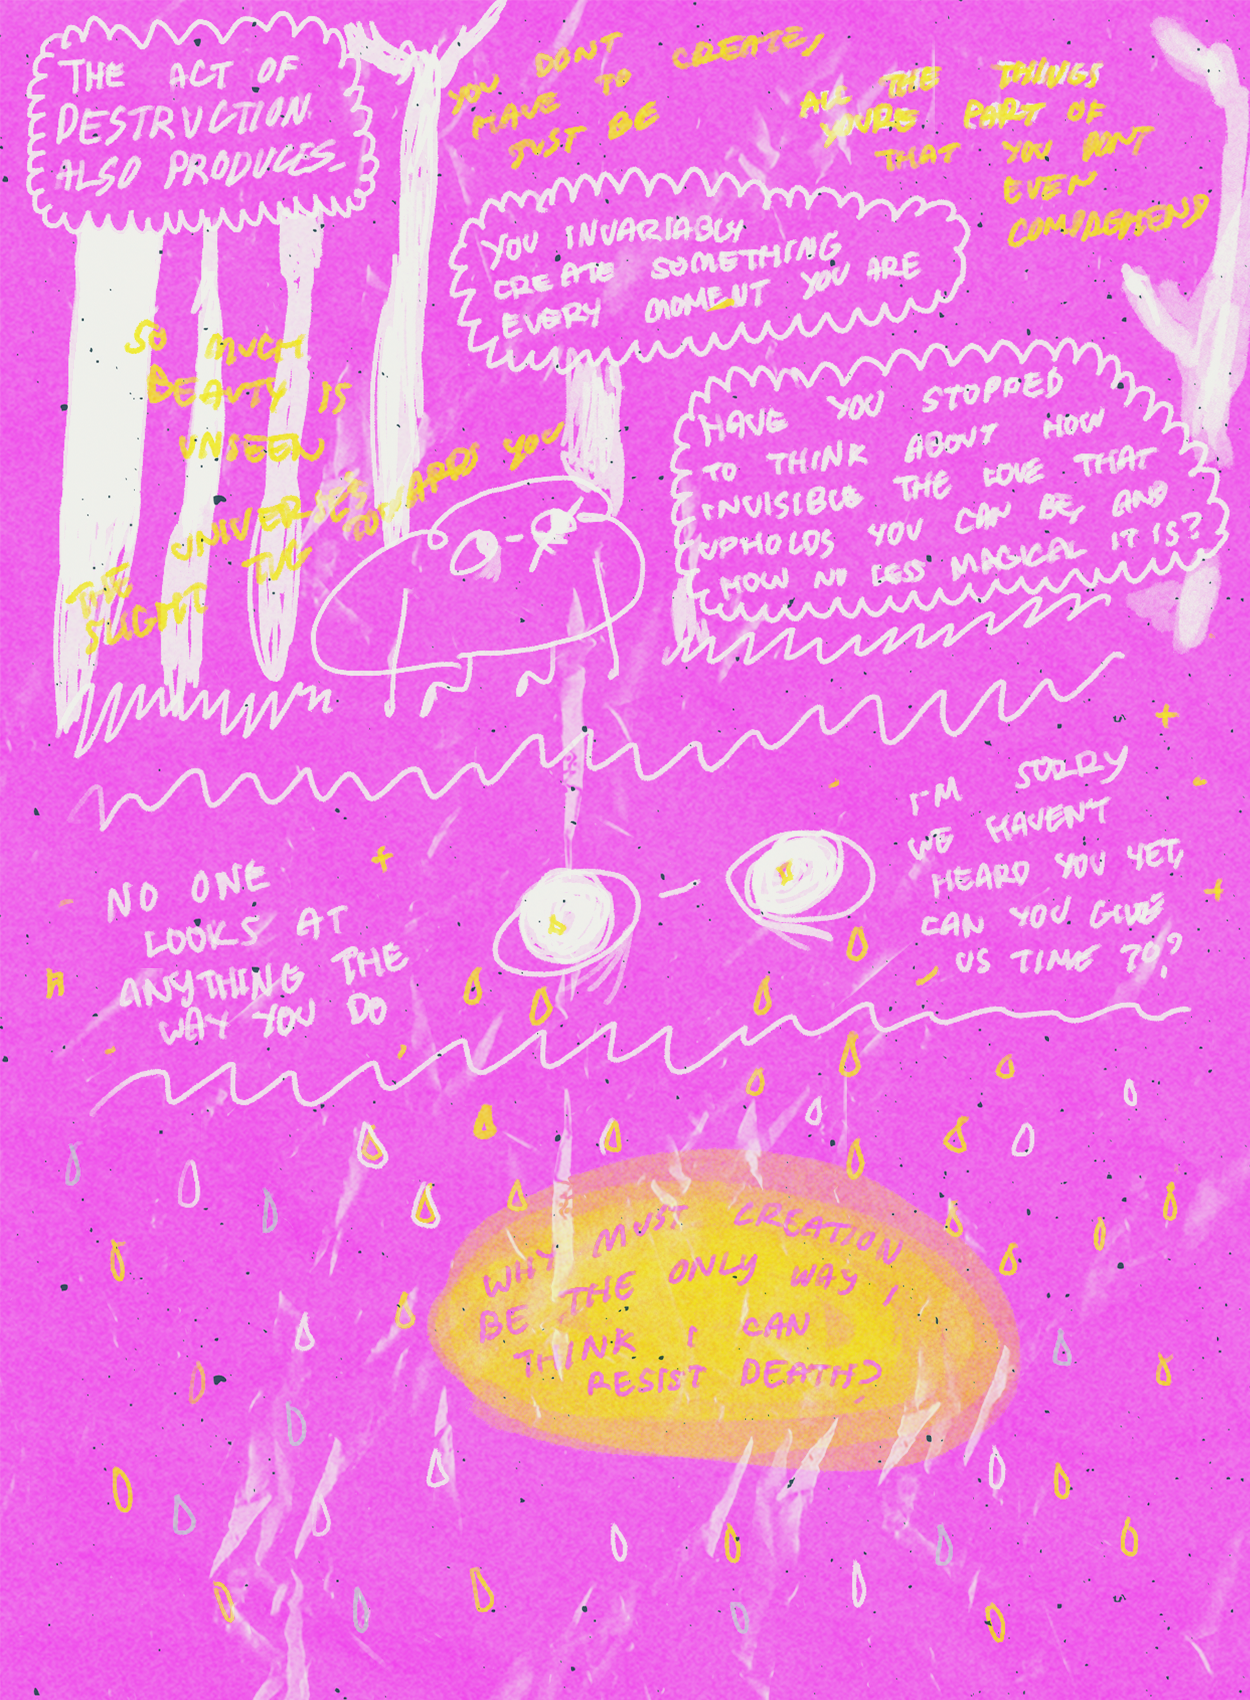 THE ACT OF
DESTRUCTION
ALSO PRODUCES
YOU DONT
HAVE TO CREATE,
JUST BE
ALL THE THINGS
YOURE PART OF
THAT YOU DONT
EVEN
COMPREHEND
YOU INVARIABLY
CREATE SOMETHING
EVERY MOMENT YOU ARE
SO MUCH
BEAUTY IS
UNSEEN
THE UNIVERSE'S
SLIGHT TUG TOWARDS YOU
HAVE YOU STOPPED
TO THINK ABOUT HOW
INVISIBLE THE LOVE THAT
UPHOLDS YOU CAN BE, AND
HOW NO LESS MAGICAL IT IS?
NO ONE
LOOKS AT
ANYTHING THE
WAY YOU DO
I'M SORRY
WE HAVEN'T
HEARD YOU YET,
CAN YOU GIVE
US TIME TO?
WHY MUST CREATION
BE THE ONLY WAY I
THINK I CAN
RESIST DEATH?